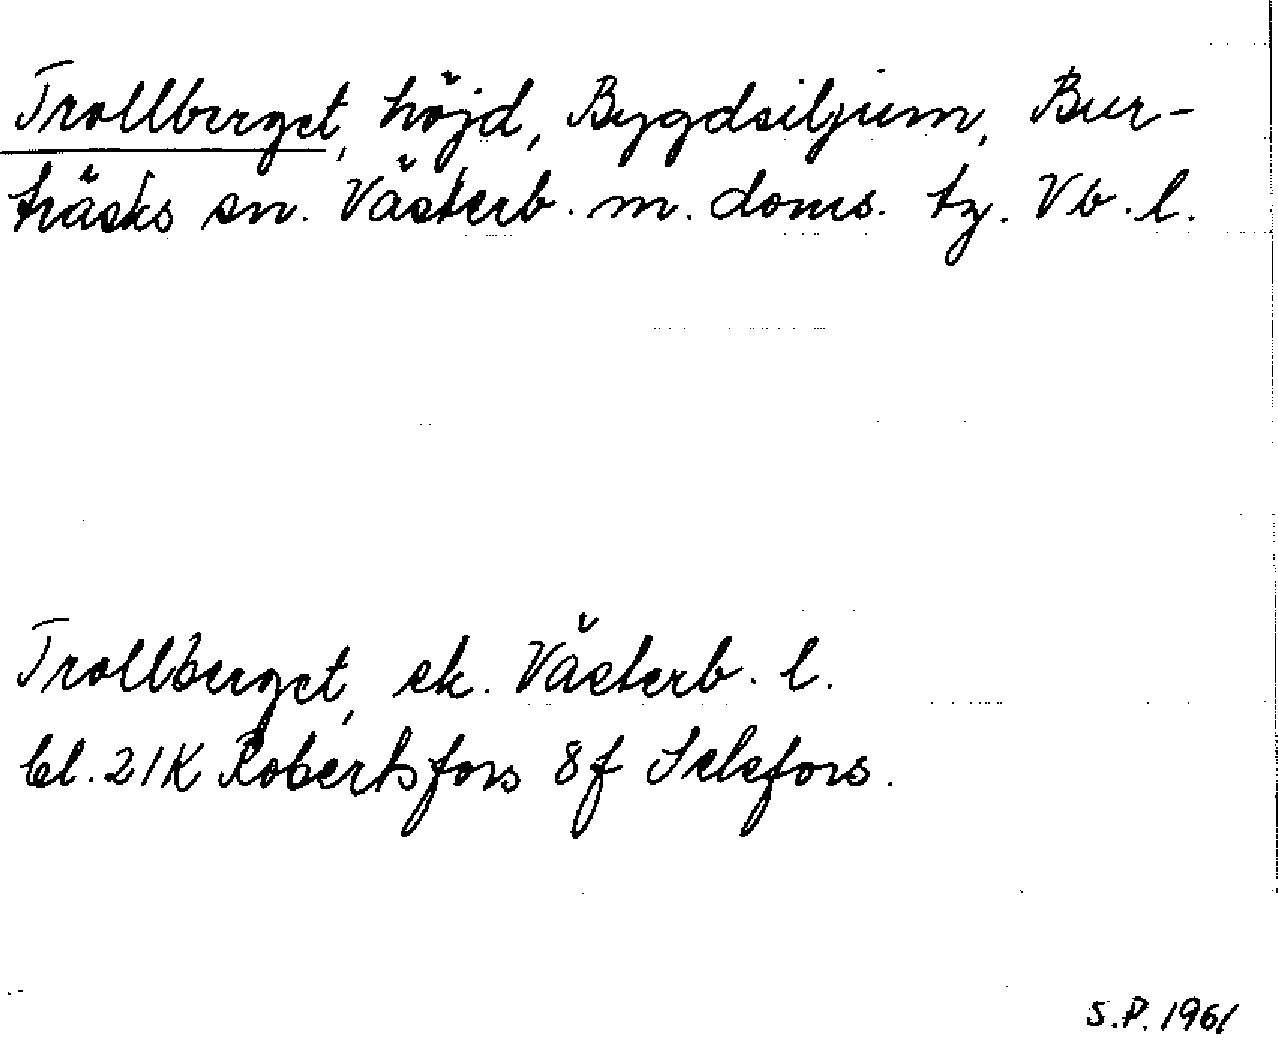 Trollberget, höjd, Bygdsiljum, Bur-
träsks sn. Västerb. m. doms. tg. Vb. l.
Trollberget, ek. Västerb. l.
bl. 21K Robertsfors 8f Selsfors.
S.P. 1961